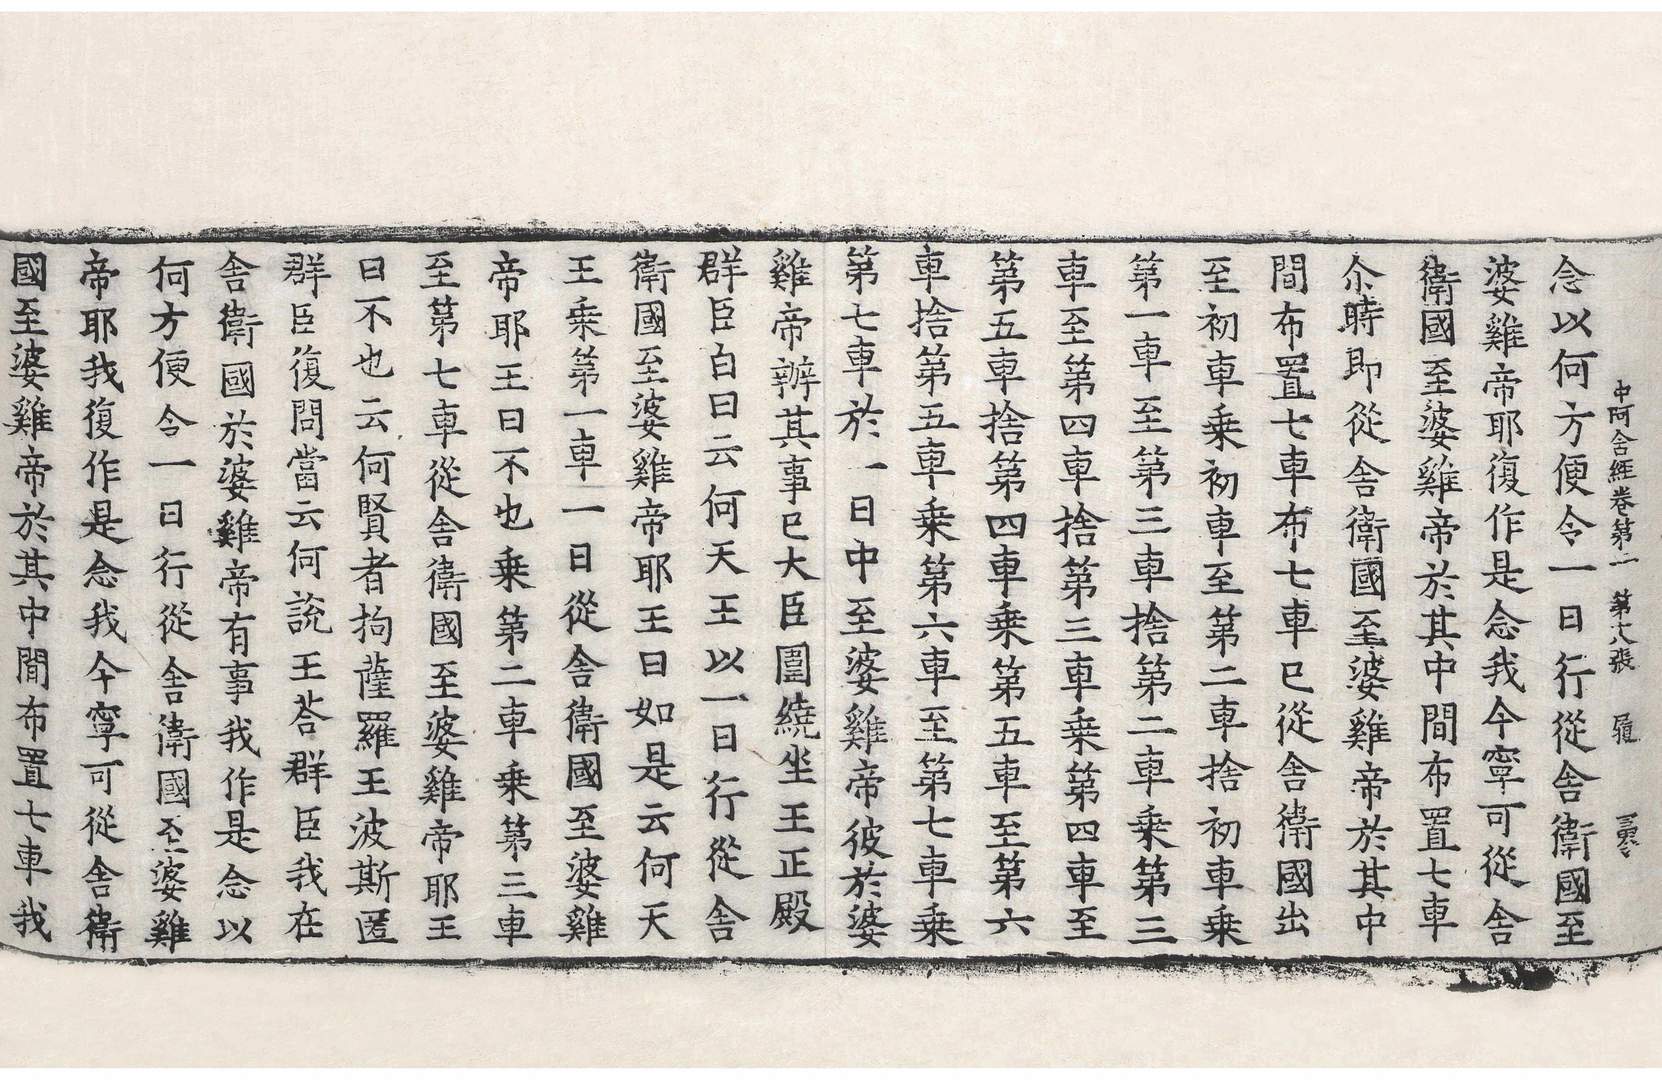 中阿含經卷第二 第十八張 履
念以何方便令一日行從舍衛國至
婆雞帝耶復作是念我今寧可從舍
衛國至婆雞帝於其中間布置七車
尒時即從舍衛國至婆雞帝於其中
間布置七車布七車已從舍衛國出
至初車乗初車至第二車捨初車乗
第一車至第三車捨第二車乗第三
車至第四車捨第三車乗第四車至
第五車捨第四車乗第五車至第六
車捨第五車乗第六車至第七車乗
第七車於一日中至婆雞帝彼於婆
雞帝辦其事已大臣圍繞坐王正殿
群臣白曰云何天王以一日行從舍
衛國至婆雞帝耶王曰如是云何天
王乗第一車一日從舍衛國至婆雞
帝耶王曰不也乗第二車乗第三車
至第七車從舍衛國至婆雞帝耶王
曰不也云何賢者拘薩羅王波斯匿
群臣復問當云何說王荅群臣我在
舍衛國於婆雞帝有事我作是念以
何方便令一日行從舍衛國至婆雞
帝耶我復作是念我今寧可從舍衛
國至婆雞帝於其中間布置七車我